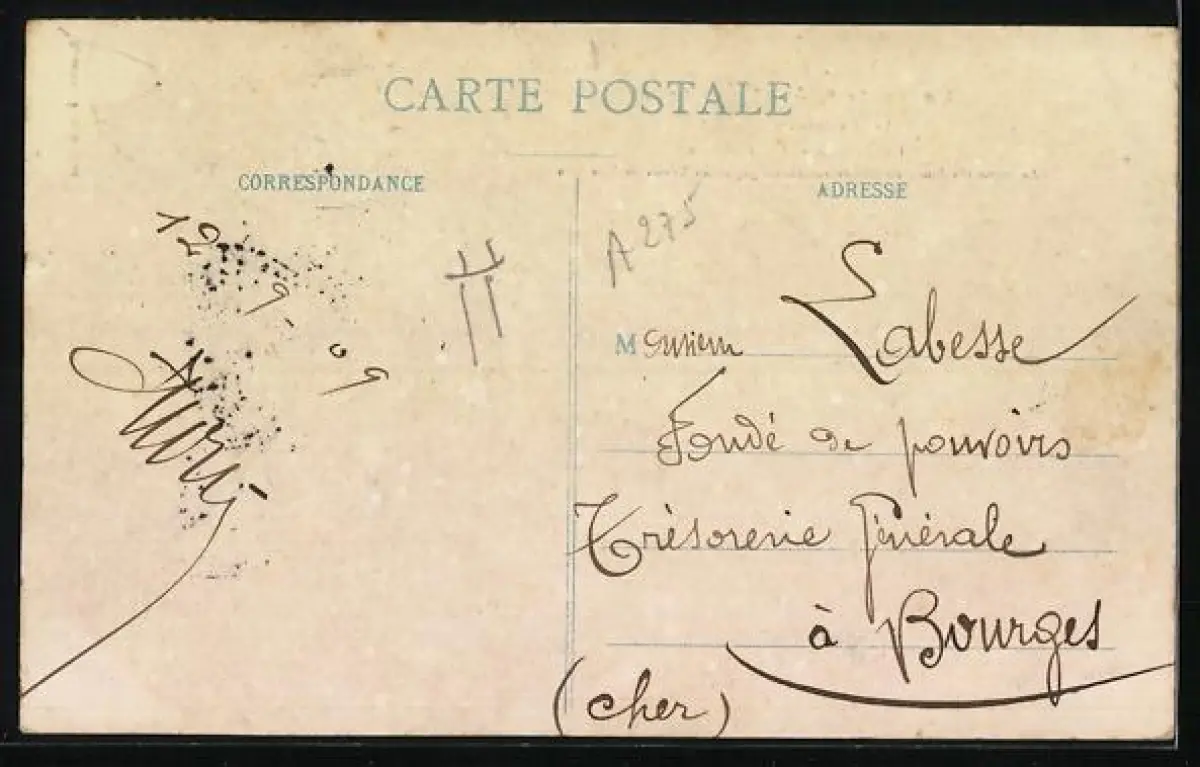 CARTE POSTALE
CORRESPONDANCE
ADRESSE
12-9-09
A 275
Monsieur Labesse
Fondé de pouvoirs
Trésorerie Générale
à Bourges
(Cher)